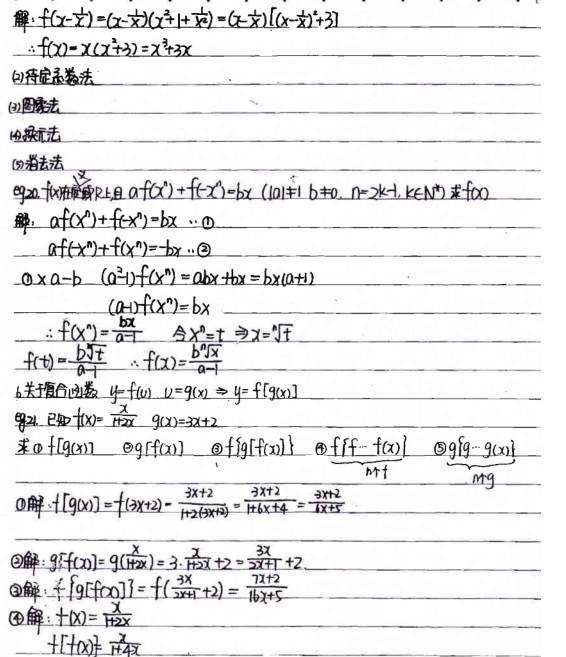 解: f(x-1/x)=(x-1/x)(x²+1+1/x²)=(x-1/x)[(x-1/x)²+3]
∴f(x)=x(x²+3)=x³+3x
(2)待定系数法
(3)图象法
(4)换元法
(5)消去法
eg20. f(x)在R上且 af(xⁿ)+f(-xⁿ)=bx (|a|≠1 b≠0. n=2k-1, k∈N*) 求f(x)
解: af(xⁿ)+f(-xⁿ)=bx ..①
af(-xⁿ)+f(xⁿ)=-bx ..②
①×a-b (a²-1)f(xⁿ)=abx+bx=bx(a+1)
(a-1)f(xⁿ)=bx
∴f(xⁿ)=bx/a-1 令xⁿ=t ⇒x=ⁿ√t
f(t)=bⁿ√t/a-1 ∴f(x)=bⁿ√x/a-1
6.关于复合函数 y=f(u) u=g(x) ⇒ y=f[g(x)]
eg21. 已知f(x)=x/1+2x g(x)=3x+2
求①f[g(x)] ②g[f(x)] ③f{g[f(x)]} ④f{f…f(x)} ⑤g{g…g(x)}
n个f n个g
①解: f[g(x)]=f(3x+2)=3x+2/1+2(3x+2)=3x+2/1+6x+4=3x+2/6x+5
②解: g[f(x)]=g(x/1+2x)=3·x/1+2x+2=3x/2x+1+2
③解: f{g[f(x)]}=f(3x/2x+1+2)=7x+2/16x+5
④解: f(x)=x/1+2x
f[f(x)]=x/1+4x